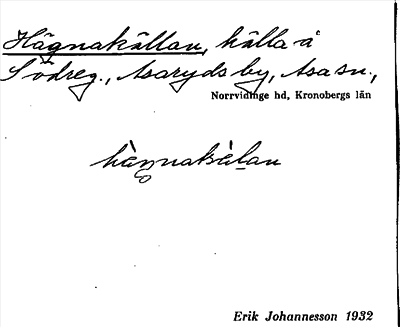 Hägnakällan, källa å
Södreg., Asaryds by, Asa sn.,
Norrvidinge hd, Kronobergs län
Erik Johannesson 1932